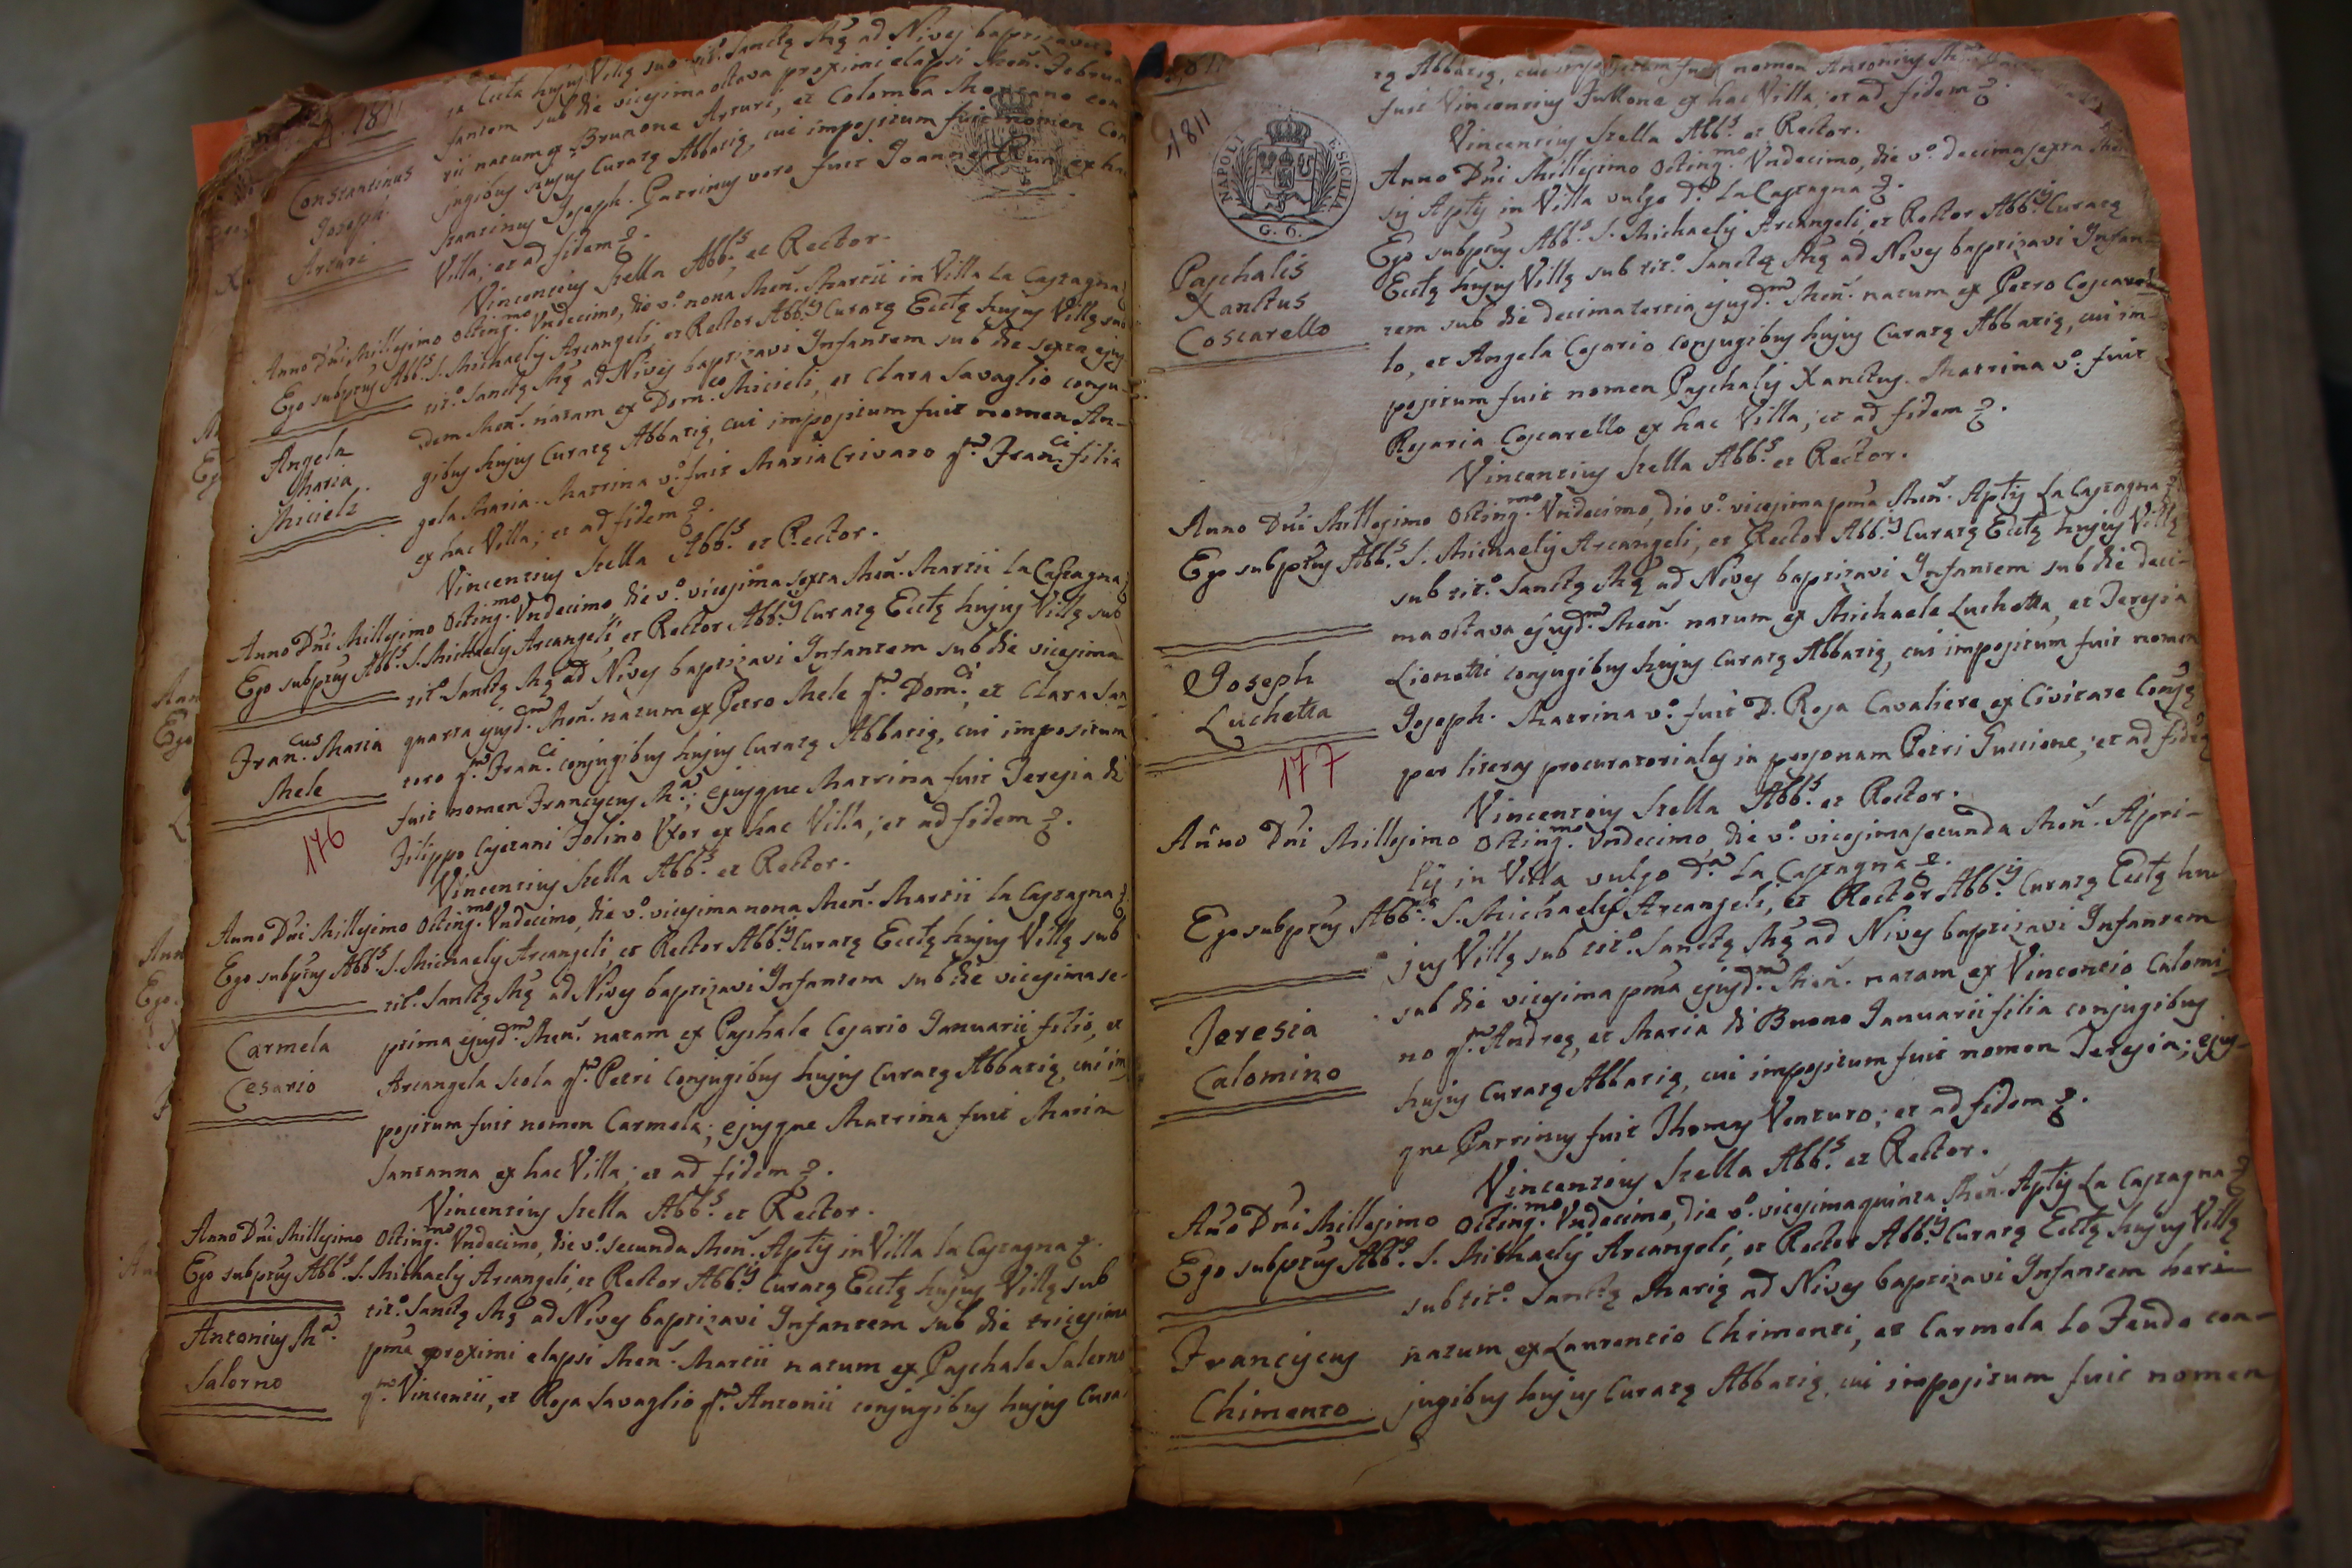 1811
Eccłę hujus Villę sub tit.º Sanctę Mę ad Nives baptizavi
fantem sub die vicesima octava proximi elapsi Men. Februa
rii natum ex Brunone Arturi, et Colomba Montano con
jugibus hujus Curatę Abbatię, cui impositum fuit nomen Con
stantinus Joseph. Patrinus vero fuit Joannes ex hac
Villa; et ad fidem
Constantinus
Joseph
Arturi
Vincentius Stella Abb.s et Rector.
Anno Dni Millesimo Octing.mo Undecimo, die vº. nona Men. Martii in Villa La Castagna
Ego subptus Abb.s S. Michaelis Arcangeli, et Rector Abb.ę Curatę Eccłę hujus Villę sub
tit.º Sanctę Mę ad Nives baptizavi Infantem sub die sexta ejus
dem Men. natam ex Dom.co Micieli, et Clara Savaglio conju-
gibus hujus Curatę Abbatię, cui impositum fuit nomen An-
gela Maria. Matrina vº. fuit Maria Crivaro q.m Fran.ci filia
ex hac Villa; et ad fidem
Angela
Maria
Micieli
Vincentius Stella Abb.s et Rector.
Anno Dni Millesimo Octing.mo Undecimo, die vº. vicesima sexta Men. Martii La Castagna
Ego subptus Abb.s S. Michaelis Arcangeli, et Rector Abb.ę Curatę Eccłę hujus Villę sub
tit.º Sanctę Mę ad Nives baptizavi Infantem sub die vicesima
quarta ejusd.m Men. natum ex Petro Mele q.m Dom.ci, et Clara San
toro q.m Fran.ci conjugibus hujus Curatę Abbatię, cui impositum
fuit nomen Franciscus M.a; ejusque Matrina fuit Teresia di
Filippo Cajetani Folino Uxor ex hac Villa; et ad fidem
Fran.cus Maria
Mele
176
Vincentius Stella Abb.s et Rector.
Anno Dni Millesimo Octing.mo Undecimo, die vº. vicesima nona Men. Martii La Castagna
Ego subptus Abb.s S. Michaelis Arcangeli, et Rector Abb.ę Curatę Eccłę hujus Villę sub
tit.º Sanctę Mę ad Nives baptizavi Infantem sub die vicesima se-
ptima ejusd.m Men. natam ex Paschale Cesario Januarii filio, et
Arcangela Scola q.m Petri conjugibus hujus Curatę Abbatię, cui im-
positum fuit nomen Carmela; ejusque Matrina fuit Maria
Santanna ex hac Villa; et ad fidem
Carmela
Cesario
Vincentius Stella Abb.s et Rector.
Anno Dni Millesimo Octing.mo Undecimo, die vº. secunda Men. Aplis in Villa La Castagna
Ego subptus Abb.s S. Michaelis Arcangeli, et Rector Abb.ę Curatę Eccłę hujus Villę sub
tit.º Sanctę Mę ad Nives baptizavi Infantem sub die tricesima
pma proximi elapsi Men. Martii natum ex Paschale Salerno
q.m Vincentii, et Rosa Savaglio q.m Antonii conjugibus hujus Cura
Antonius M.a
Salerno
1811
NAPOLI E SICILIA
G. 6.
tę Abbatię, cui impositum fuit nomen Antonius M.a
fuit Vincentius Fullone ex hac Villa; et ad fidem
Vincentius Stella Abb.s et Rector.
Anno Dni Millesimo Octing.mo Undecimo, die vº. decimasexta Men
sis Aplis in Villa vulgo d.a La Castagna
Ego subptus Abb.s S. Michaelis Arcangeli, et Rector Abb.ę Curatę
Eccłę hujus Villę sub tit.º Sanctę Mę ad Nives baptizavi Infan-
tem sub die decimatertia ejusd.m Men. natum ex Petro Coscarel
lo, et Angela Cesario conjugibus hujus Curatę Abbatię, cui im-
positum fuit nomen Paschalis Xanctus. Matrina vº. fuit
Rosaria Coscarello ex hac Villa; et ad fidem
Paschalis
Xanctus
Coscarello
Vincentius Stella Abb.s et Rector.
Anno Dni Millesimo Octing.mo Undecimo, die vº. vicesima pma Men. Aplis La Castagna
Ego subptus Abb.s S. Michaelis Arcangeli, et Rector Abb.ę Curatę Eccłę hujus Villę
sub tit.º Sanctę Mę ad Nives baptizavi Infantem sub die deci-
ma octava ejusd.m Men. natum ex Michaele Luchetta, et Teresia
Lionetti conjugibus hujus Curatę Abbatię, cui impositum fuit nomen
Joseph. Matrina vº. fuit D. Rosa Cavaliere ex Civitate Consę
per literas procuratoriales in personam Petri Guccione; et ad fidem
Joseph
Luchetta
177
Vincentius Stella Abb.s et Rector.
Anno Dni Millesimo Octing.mo Undecimo, die vº. vicesimasecunda Men. Apri-
lis in Villa vulgo d.a La Castagna
Ego subptus Abb.s S. Michaelis Arcangeli, et Rector Abb.ę Curatę Eccłę hu
jus Villę sub tit.º Sanctę Mę ad Nives baptizavi Infantem
sub die vicesima pma ejusd.m Men. natam ex Vincentio Calomi
no q.m Andreę, et Maria di Buono Januarii filia conjugibus
hujus Curatę Abbatię, cui impositum fuit nomen Teresia; ejus-
que Patrinus fuit Thomas Venturo; et ad fidem
Teresia
Calomino
Vincentius Stella Abb.s et Rector.
Año Dni Millesimo Octing.mo Undecimo, die vº. vicesimaquinta Men. Aplis La Castagna
Ego subptus Abb.s S. Michaelis Arcangeli, et Rector Abb.ę Curatę Eccłę hujus Villę
sub tit.º Sanctę Marię ad Nives baptizavi Infantem heri
natum ex Laurentio Chimenti, et Carmela Lo Feudo con-
jugibus hujus Curatę Abbatię, cui impositum fuit nomen
Franciscus
Chimento